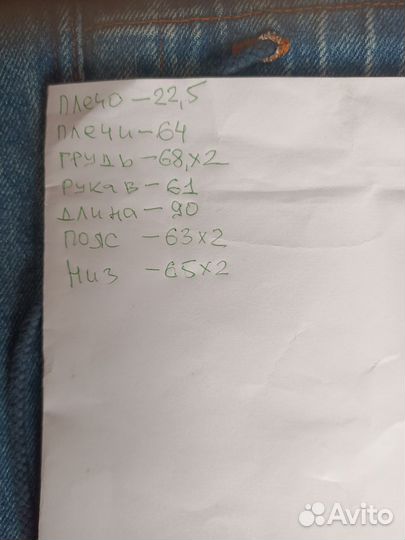 Плечо – 22,5
Плечи – 64
Грудь – 68,х2
Рукав – 61
Длина – 90
Пояс – 63х2
Низ – 65х2
Avito